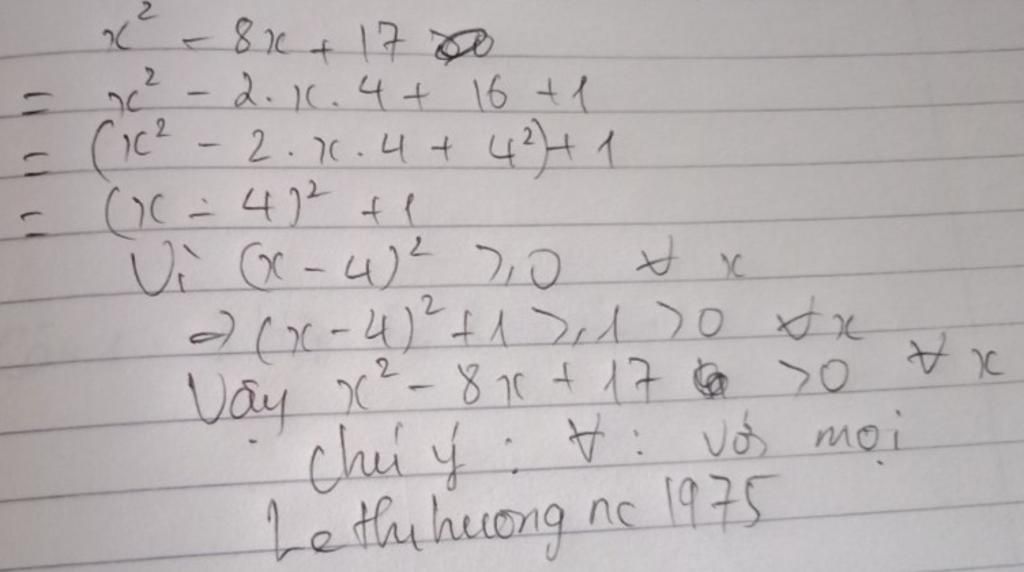 x² - 8x + 17
= x² - 2.x.4 + 16 + 1
= (x² - 2.x.4 + 4²) + 1
= (x - 4)² + 1
Vì (x - 4)² ≥ 0 ∀ x
⇒ (x - 4)² + 1 ≥ 1 > 0 ∀x
Vậy x² - 8x + 17 > 0 ∀ x
Chú ý : ∀ : với mọi
Lethuhuong nc 1975